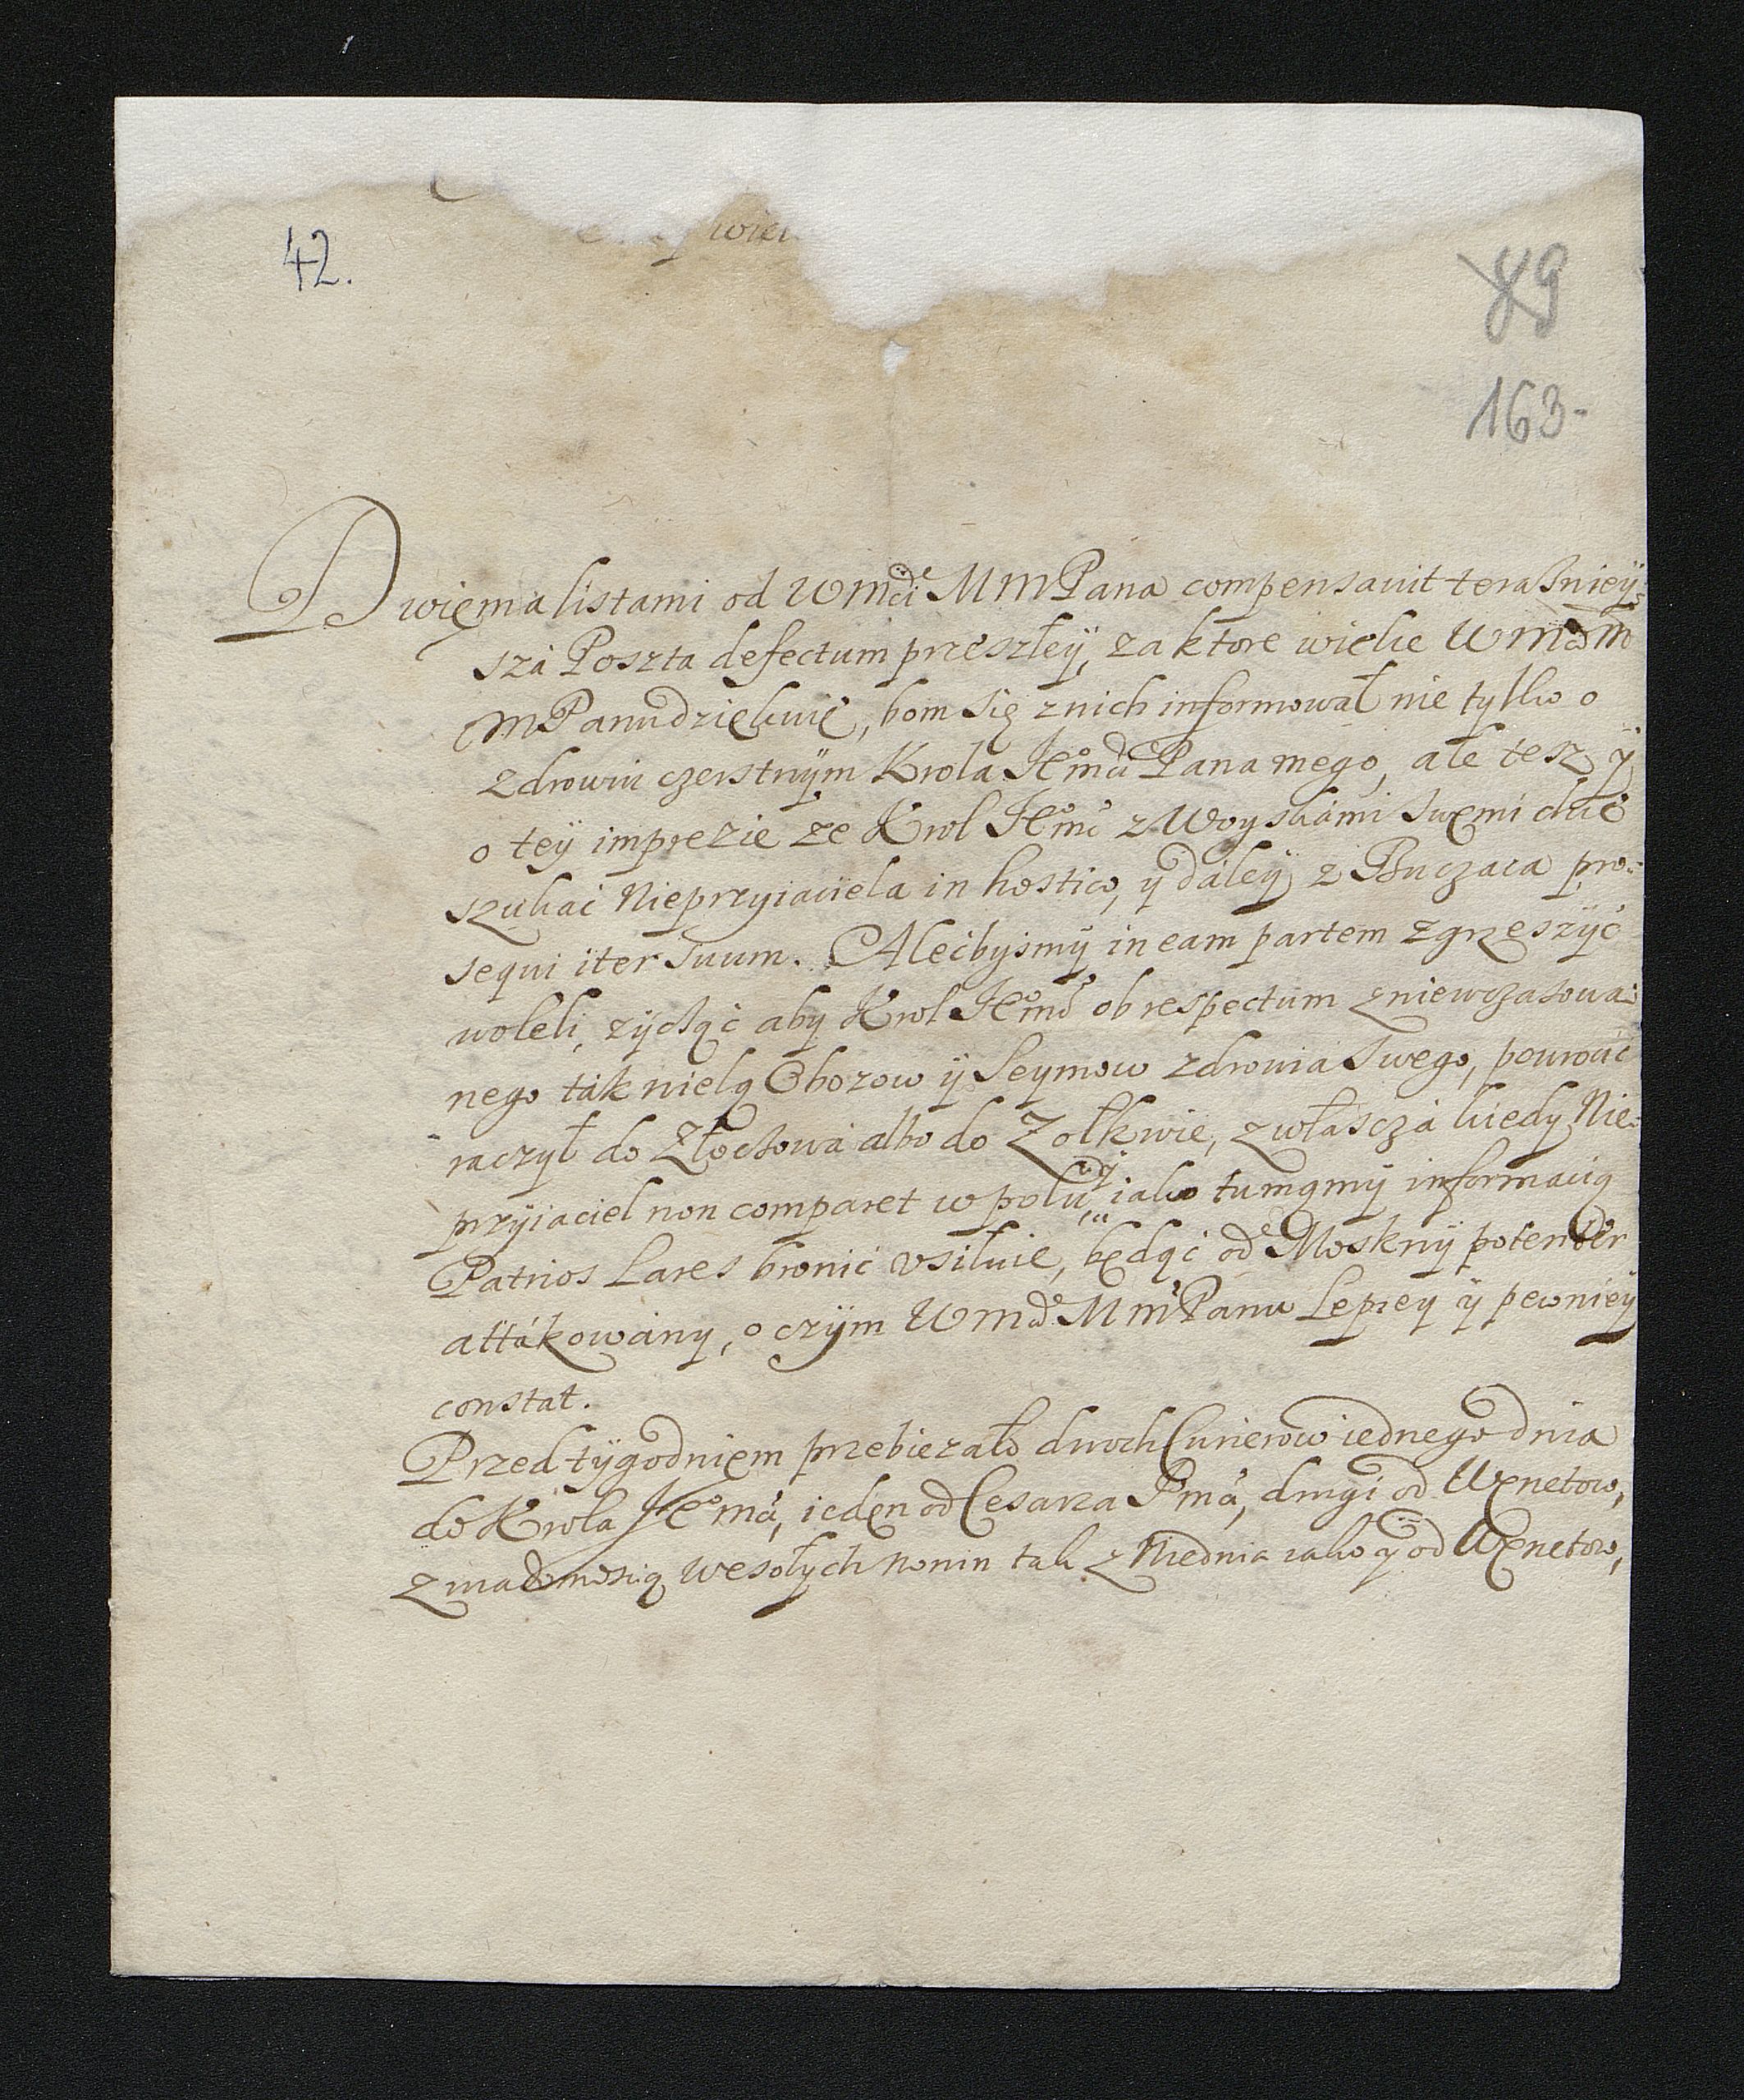 wie
42.
89
163-
Dwięma listami od WMci MMPana compensauit terasniey-
sza Poszta defectum przeszłeÿ, za ktore wielce WMciM
MPanu dziękuię, bom się z nich informował nie tylko o
zdrowiu czerstwÿm Krola JeMci Pana mego, ale tesz ÿ
o teÿ imprezie ze Krol JeMć z Woyskami swemi chce
szukać Nieprzyiaciela in hostico, y daleÿ z Buczacza pro-
sequi iter suum. Alećbysmÿ in eam partem zgrzeszÿć
woleli, zÿcząc aby Krol JeMć ob respectum zniewczasowa-
nego tak wielą Obozow ÿ Seymow zdrowia swego, powroćić
raczÿł do Złoczowa albo do Zołkwie, zwłascza kiedy Nie-
przÿiaciel non comparet w polu, ÿ iako tu mamÿ informacią
Patrios Lares bronić vsiłuie, będąć od Moskwÿ potenter
attákowány, o czÿm WMci MMPanu lepiey ÿ pewnieÿ
constat.
Przed tÿgodniem przebiezało dwoch Curierow iednego dnia
do Krola JeMci, ieden od Cesarza Jmci, drugi od Wenetow,
z wiadomosią wesołych nowin tak z Wiednia iako ÿ od Wenetow,